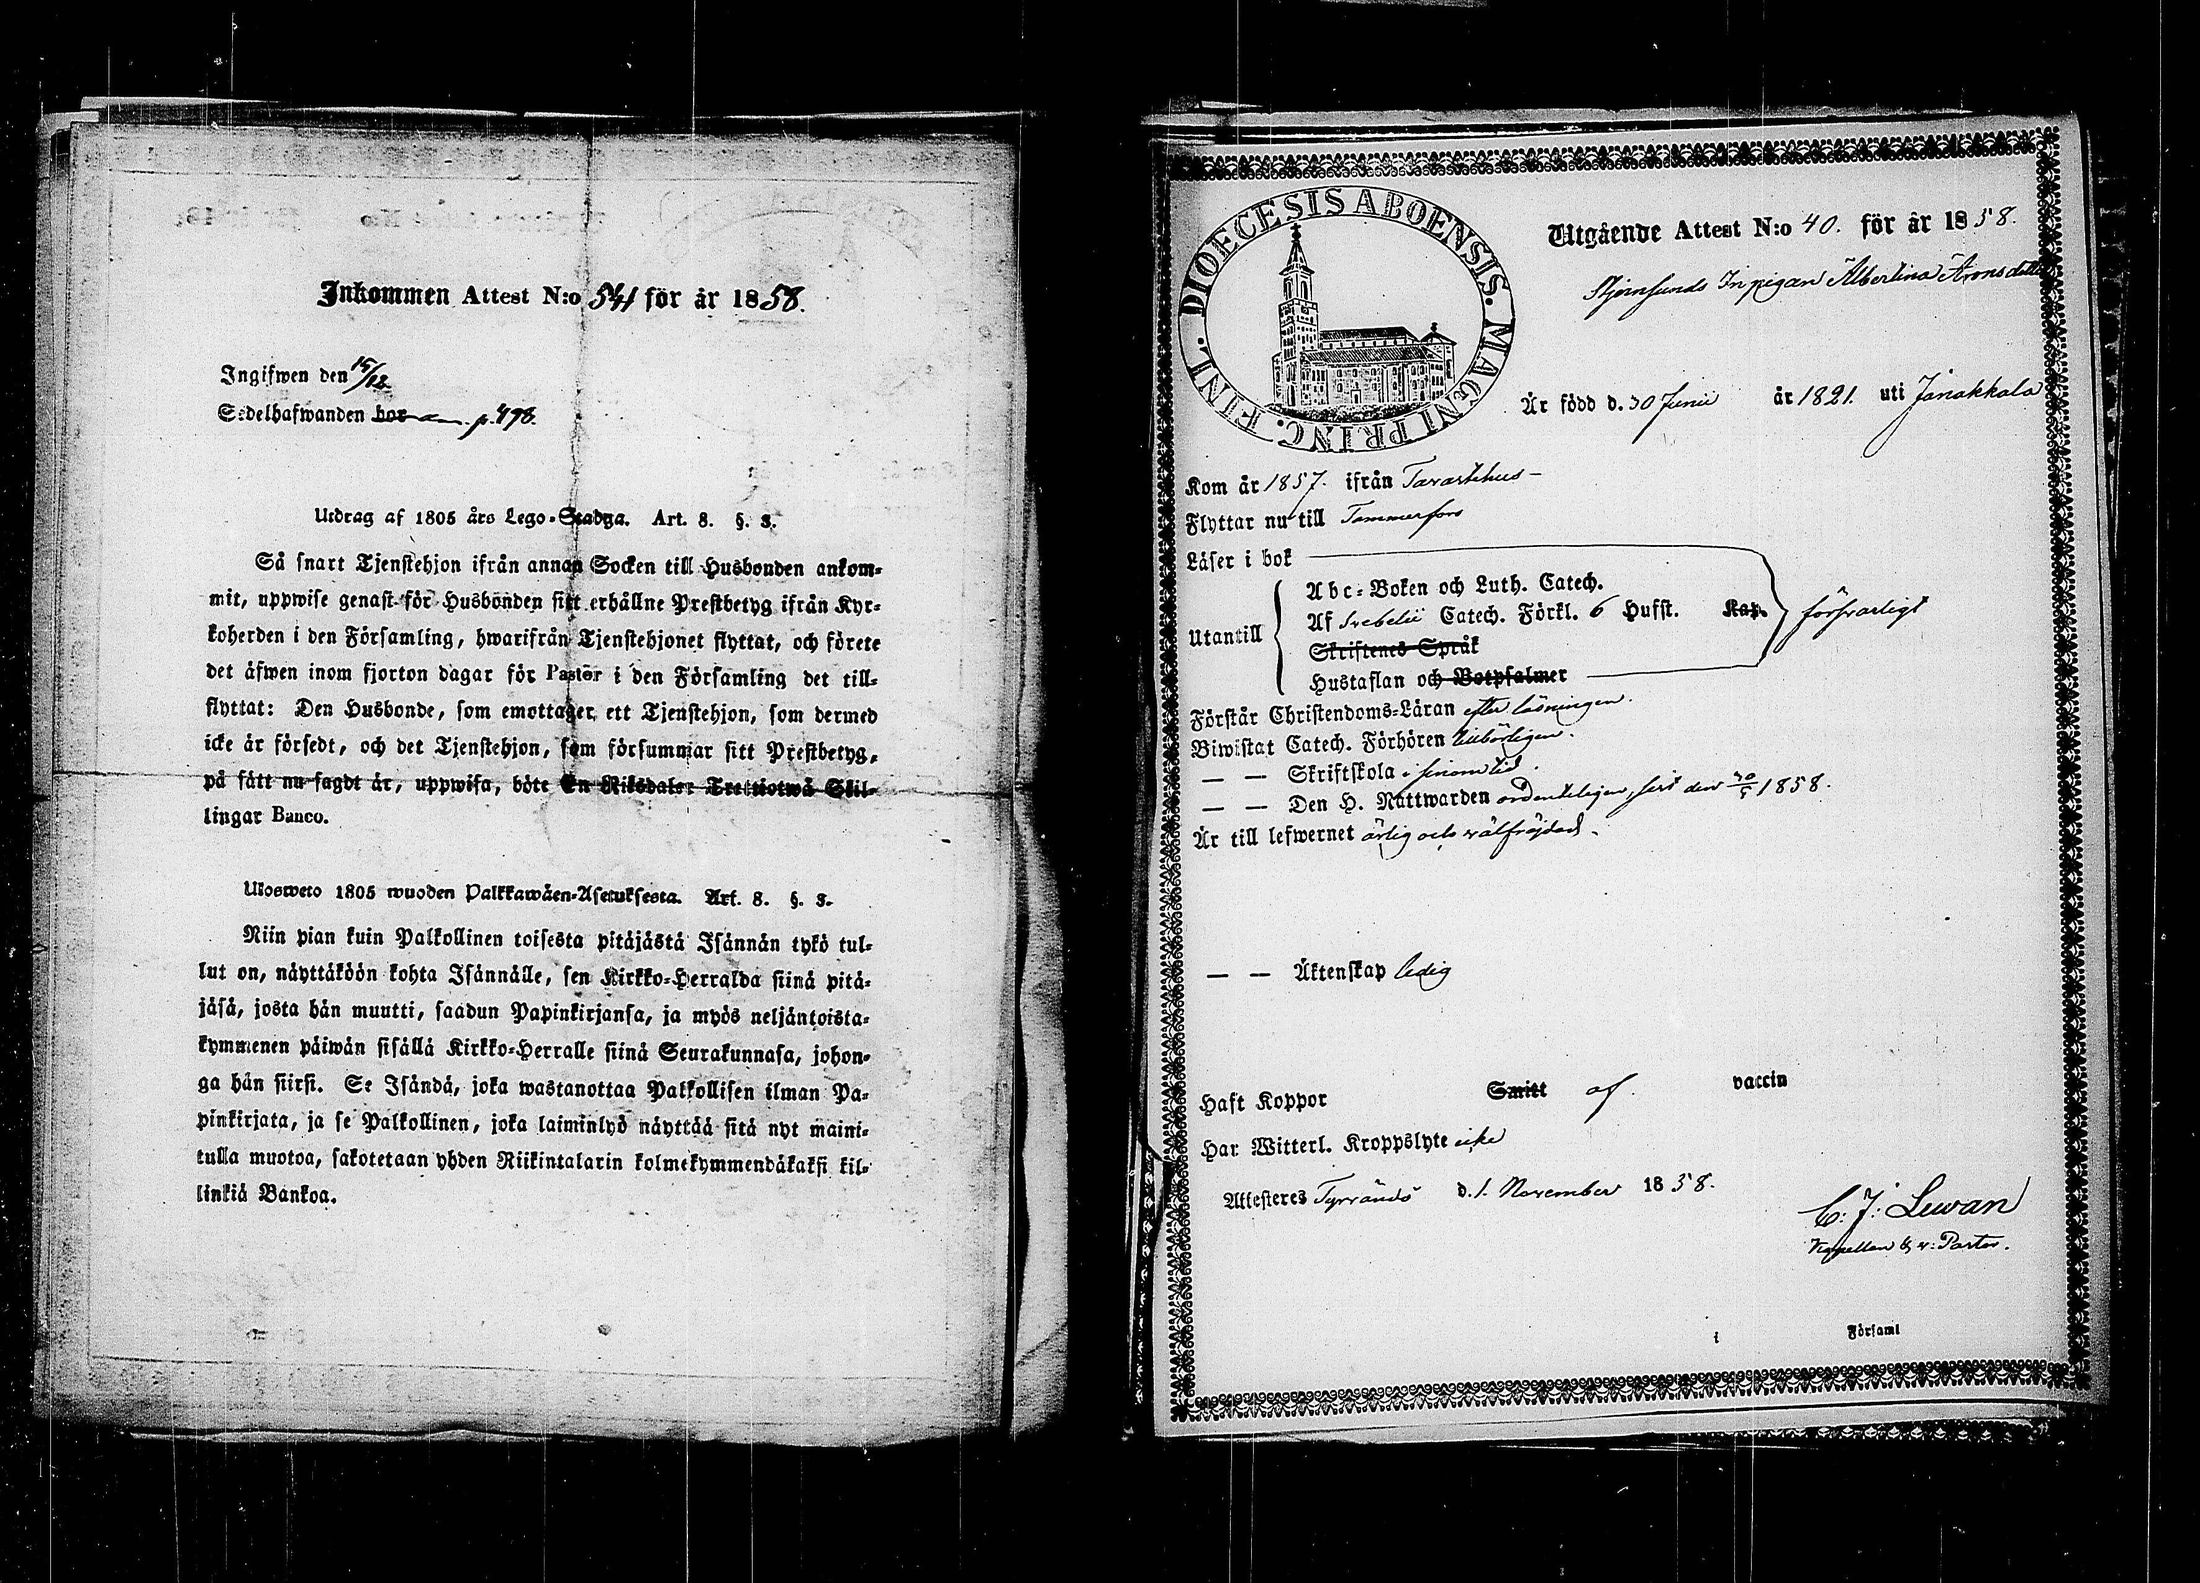 Inkommen Attest N:o 541 för år 1858.
Ingifwen den 15/12.
Sedelhafwanden bor p. 498.
Utdrag af 1805 års Lego-Stadga. Art. 8. §. 3.
Så snart Tjenstehjon ifrån annan Socken till Husbonden ankom-
mit, uppwise genast för Husbonden sitt erhållne Prestbetyg ifrån Kyr-
koherden i den Församling, hwarifrån Tjenstehjonet flyttat, och förete
det äfwen inom fjorton dagar för Pastor i den Församling det till-
flyttat: Den Husbonde, som emottager ett Tjenstehjon, som dermed
icke är försedt, och det Tjenstehjon, som försummar sitt Prestbetyg,
på sätt nu sagdt är, uppwisa, böte En Riksdaler Trettiotwå Skil-
lingar Banco.
Ulosweto 1805 wuoden Palkkawäen-Asetuksesta. Art. 8. §. 3.
Niin pian kuin Palkollinen toisesta pitäjästä Isännän tykö tul-
lut on, näyttäköön kohta Isännälle, sen Kirkko-Herralda siinä pitä-
jäsä, josta hän muutti, saadun Papinkirjansa, ja myös neljäntoista-
kymmenen päiwän sisällä Kirkko-Herralle siinä Seurakunnasa, johon-
ga hän siirsi. Se Isändä, joka wastanottaa Palkollisen ilman Pa-
pinkirjata, ja se Palkollinen, joka laiminlyö näyttää sitä nyt maini-
tulla muotoa, sakotetaan yhden Riikintalarin kolmekymmendäkaksi kil-
linkiä Bankoa.
DIOECESIS ABOENSIS. MAGNI PRINC. FINL.
Utgående Attest N:o 40. för år 1858.
Stjernsunds Inpigan Albertina Aronsdotter
Är född d. 30 Junii år 1821. uti Janakkala
Kom år 1857. ifrån Tavastehus
Flyttar nu till Tammerfors
Läser i bok
Utantill
Abc-Boken och Luth. Catech.
Af Svebelii Catech. Förkl. 6 Hufst. Kap. försvarligt
Skriftenes Språk
Hustaflan och Botpsalmer
Förstår Christendoms-Läran efter läsningen.
Biwistat Catech. Förhören tillbörligen.
— — Skriftskola i sinom tid.
— — Den H. Nattwarden ordenteligen, sist den 30/5 1858.
Är till lefwernet ärlig och välfräjdad.
— — Äktenskap ledig
Haft Koppor Smitt af vaccin
Har Witterl. Kroppslyte icke
Attesteres Tyrväntö d. 1. November 1858.
C: J: Lewan
Kapellan & v: Pastor.
i Församl